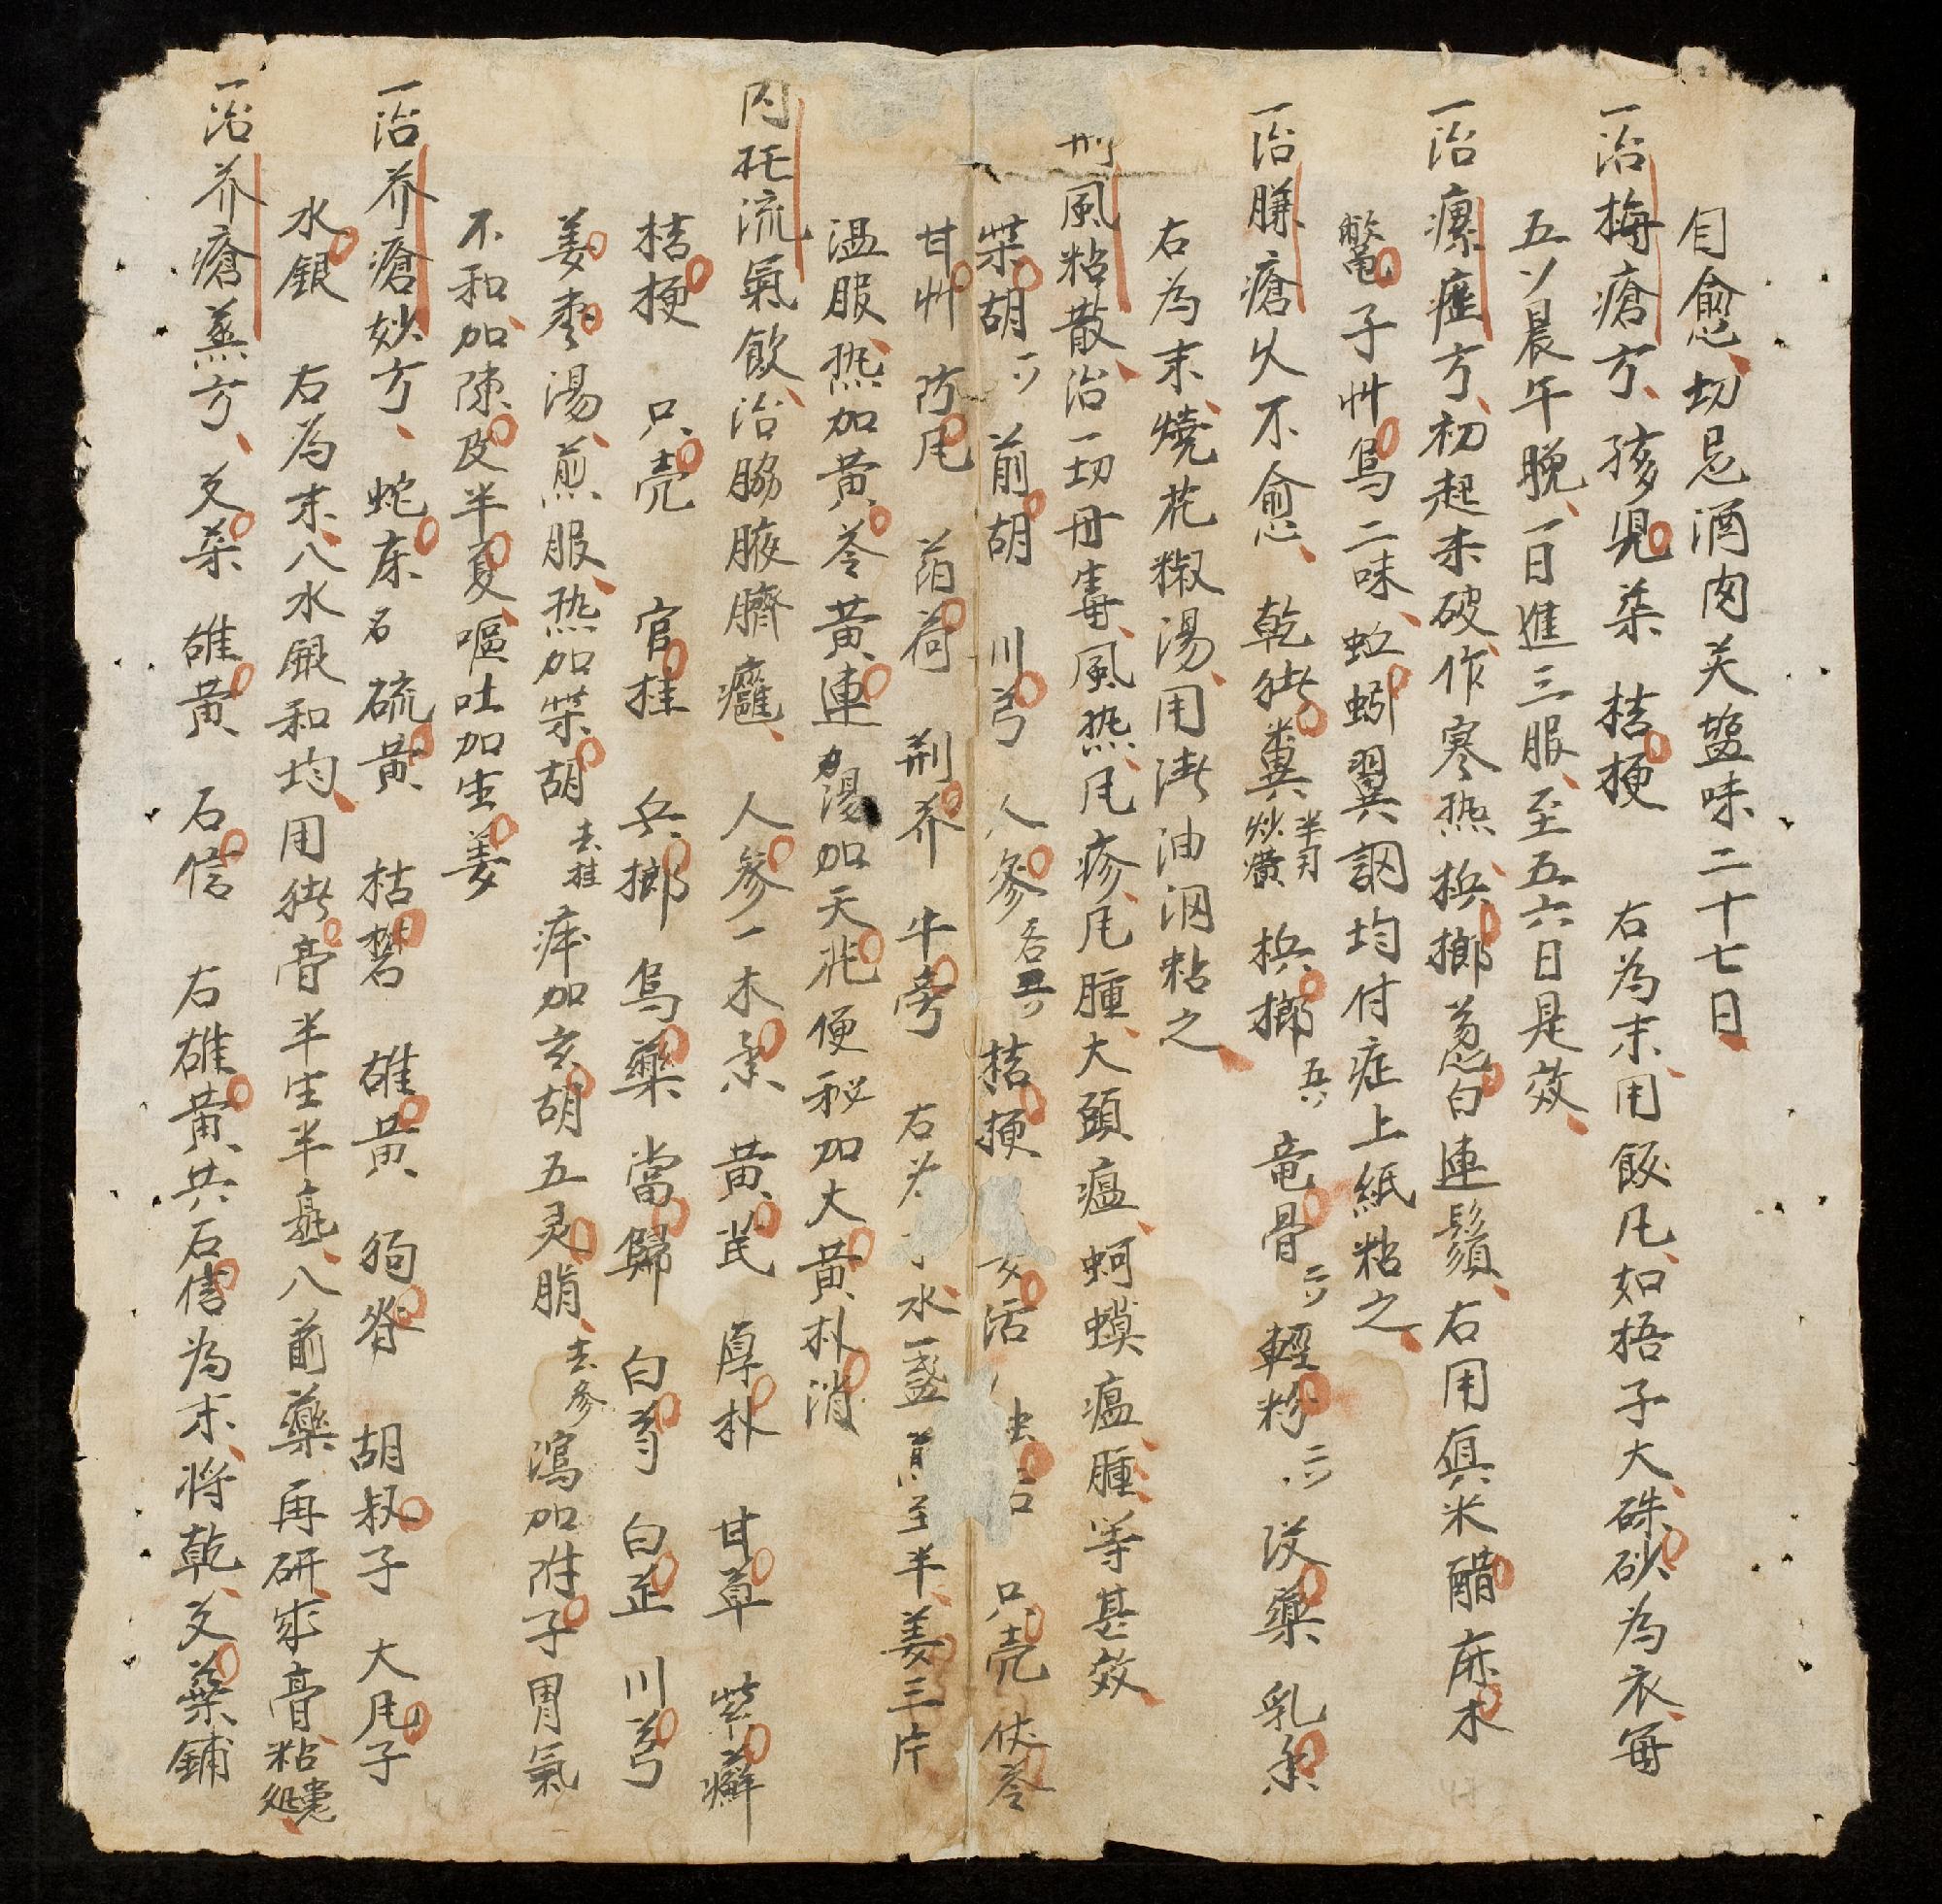 自愈切忌酒肉美塩味二十七日
一治梅瘡方孩児茶 桔梗 右為末用飯凡如梧子大硃砂為衣每
五分晨午晚一日進三服至五六日是效
一治瘰癧方初起未破作寒热梹榔葱白連鬚右用真米醋麻木
鱉子艸烏二味蚯蚓翼調均付症上紙粘之
一治臁瘡久不愈 乾猪糞半月炒黃 梹榔五分 竜骨二分 輕粉二分 没藥 乳香
右為末燒花椒湯用清油調粘之
荆風粘散治一切丹毒風热凡疹凡腫大頭瘟蚵蟆瘟腫等甚效
柴胡二分 前胡 川芎 人參各五分 桔梗 活 只壳 伏苓
甘艸 防凡 萡荷 荆芥 牛旁 右 水一盞 至半姜三片
温服热加黄芩黄連 湯加天花便秘加大黄朴消
内托流氣飲治脇腋臍癰 人參一木香 黄芪 厚朴 甘草 紫癬
桔梗 只壳 官桂 兵榔 烏藥 當歸 白芍 白芷 川芎
姜枣湯煎服热加柴胡去桂 痒加玄胡五灵脂去參 瀉加附子胃氣
不和加陳皮半夏嘔吐加生姜
一治芥瘡妙方 蛇床名硫黄 枯礬 雄黄 狗脊 胡椒子 大凡子
水銀 右為末八水銀和均用猪膏半生半熟八前藥再研成膏粘患処
一治芥瘡蒸方 艾葉 雄黄 石信 右雄黄共石信為末将乾艾葉鋪